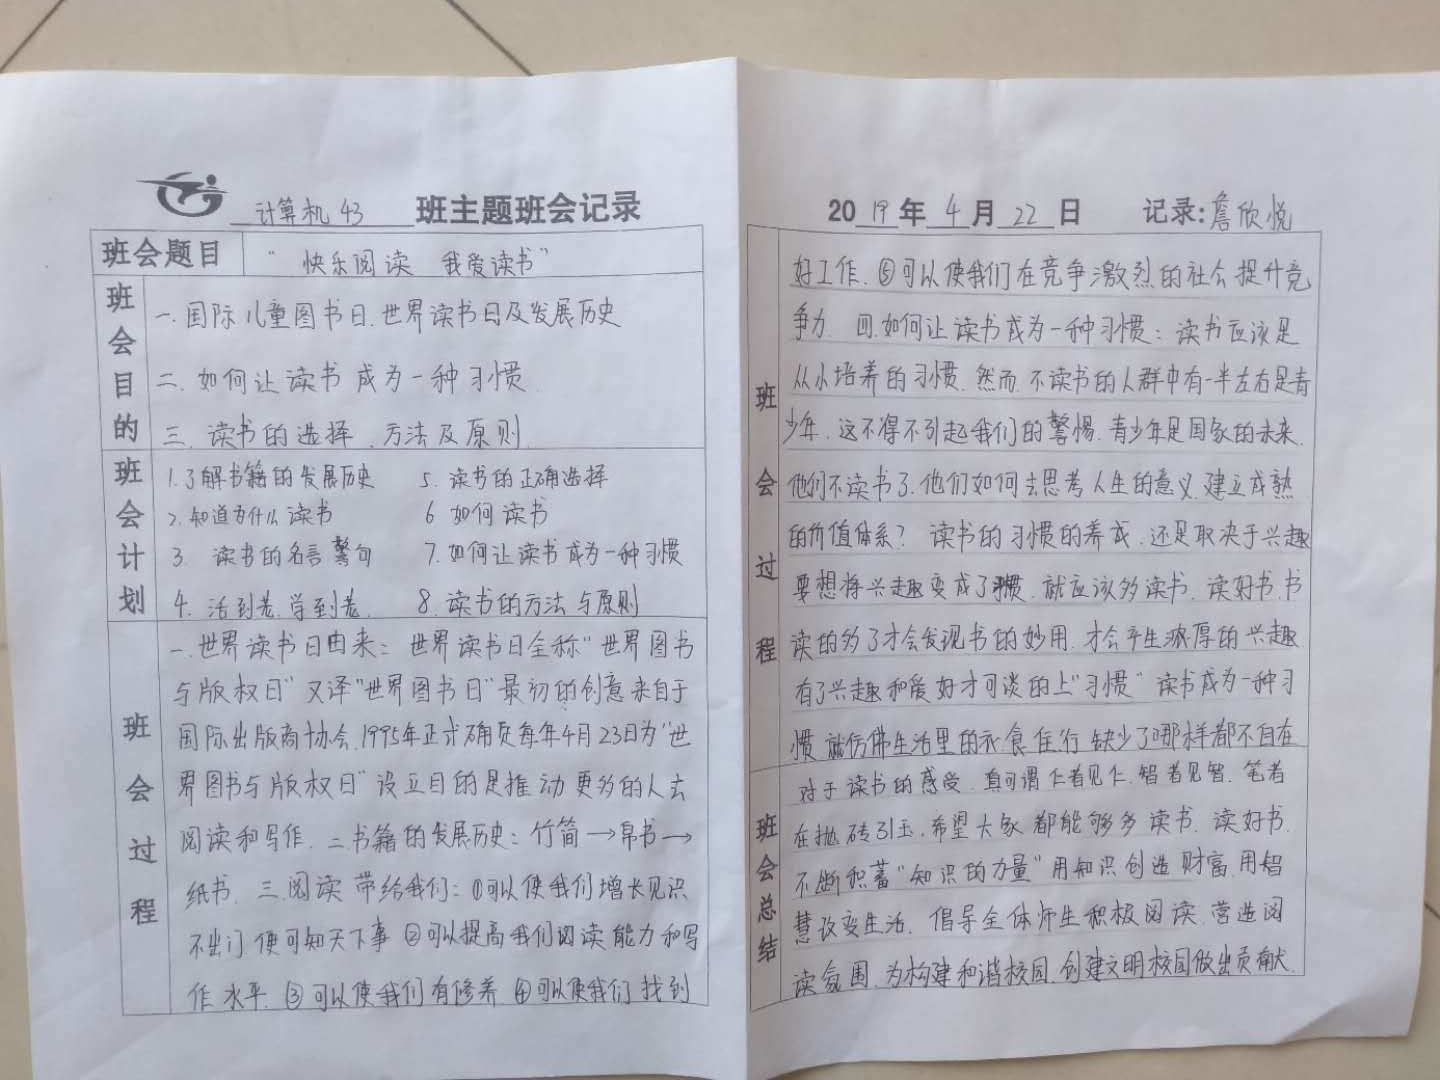 计算机43 班主题班会记录
班会题目 “快乐阅读 我爱读书”
班会目的
一.国际儿童图书日.世界读书日及发展历史
二.如何让读书成为一种习惯.
三.读书的选择、方法及原则.
班会计划
1.了解书籍的发展历史 5.读书的正确选择
2.知道为什么读书 6 如何读书
3 读书的名言警句 7.如何让读书成为一种习惯
4.活到老.学到老. 8.读书的方法与原则
班会过程
一.世界读书日由来:世界读书日全称“世界图书
与版权日”又译“世界图书日”最初的创意来自于
国际出版商协会.1995年正式确定每年4月23日为“世
界图书与版权日”设立目的是推动更多的人去
阅读和写作.二书籍的发展历史:竹简→帛书→
纸书.三.阅读带给我们:①可以使我们增长见识
不出门便可知天下事②可以提高我们阅读能力和写
作水平.③可以使我们有修养④可以使我们找到
2019年4月22日 记录:詹欣悦
班会过程
好工作.⑤可以使我们在竞争激烈的社会提升竞
争力.四.如何让读书成为一种习惯:读书应该是
从小培养的习惯.然而.不读书的人群中有一半左右是青
少年.这不得不引起我们的警惕.青少年是国家的未来.
他们不读书了.他们如何去思考人生的意义.建立成熟
的价值体系?读书的习惯的养成.还是取决于兴趣
要想将兴趣变成了习惯.就应该多读书.读好书.书
读的多了才会发现书的妙用.才会产生浓厚的兴趣.
有了兴趣和爱好才可谈的上“习惯”读书成为一种习
惯.就仿佛生活里的衣食住行缺少了哪样都不自在
班会总结
对于读书的感受.真可谓仁者见仁.智者见智.笔者
在抛砖引玉.希望大家都能够多读书.读好书.
不断积蓄“知识的力量”用知识创造财富.用智
慧改变生活.倡导全体师生积极阅读.营造阅
读氛围.为构建和谐校园.创建文明校园做出贡献.